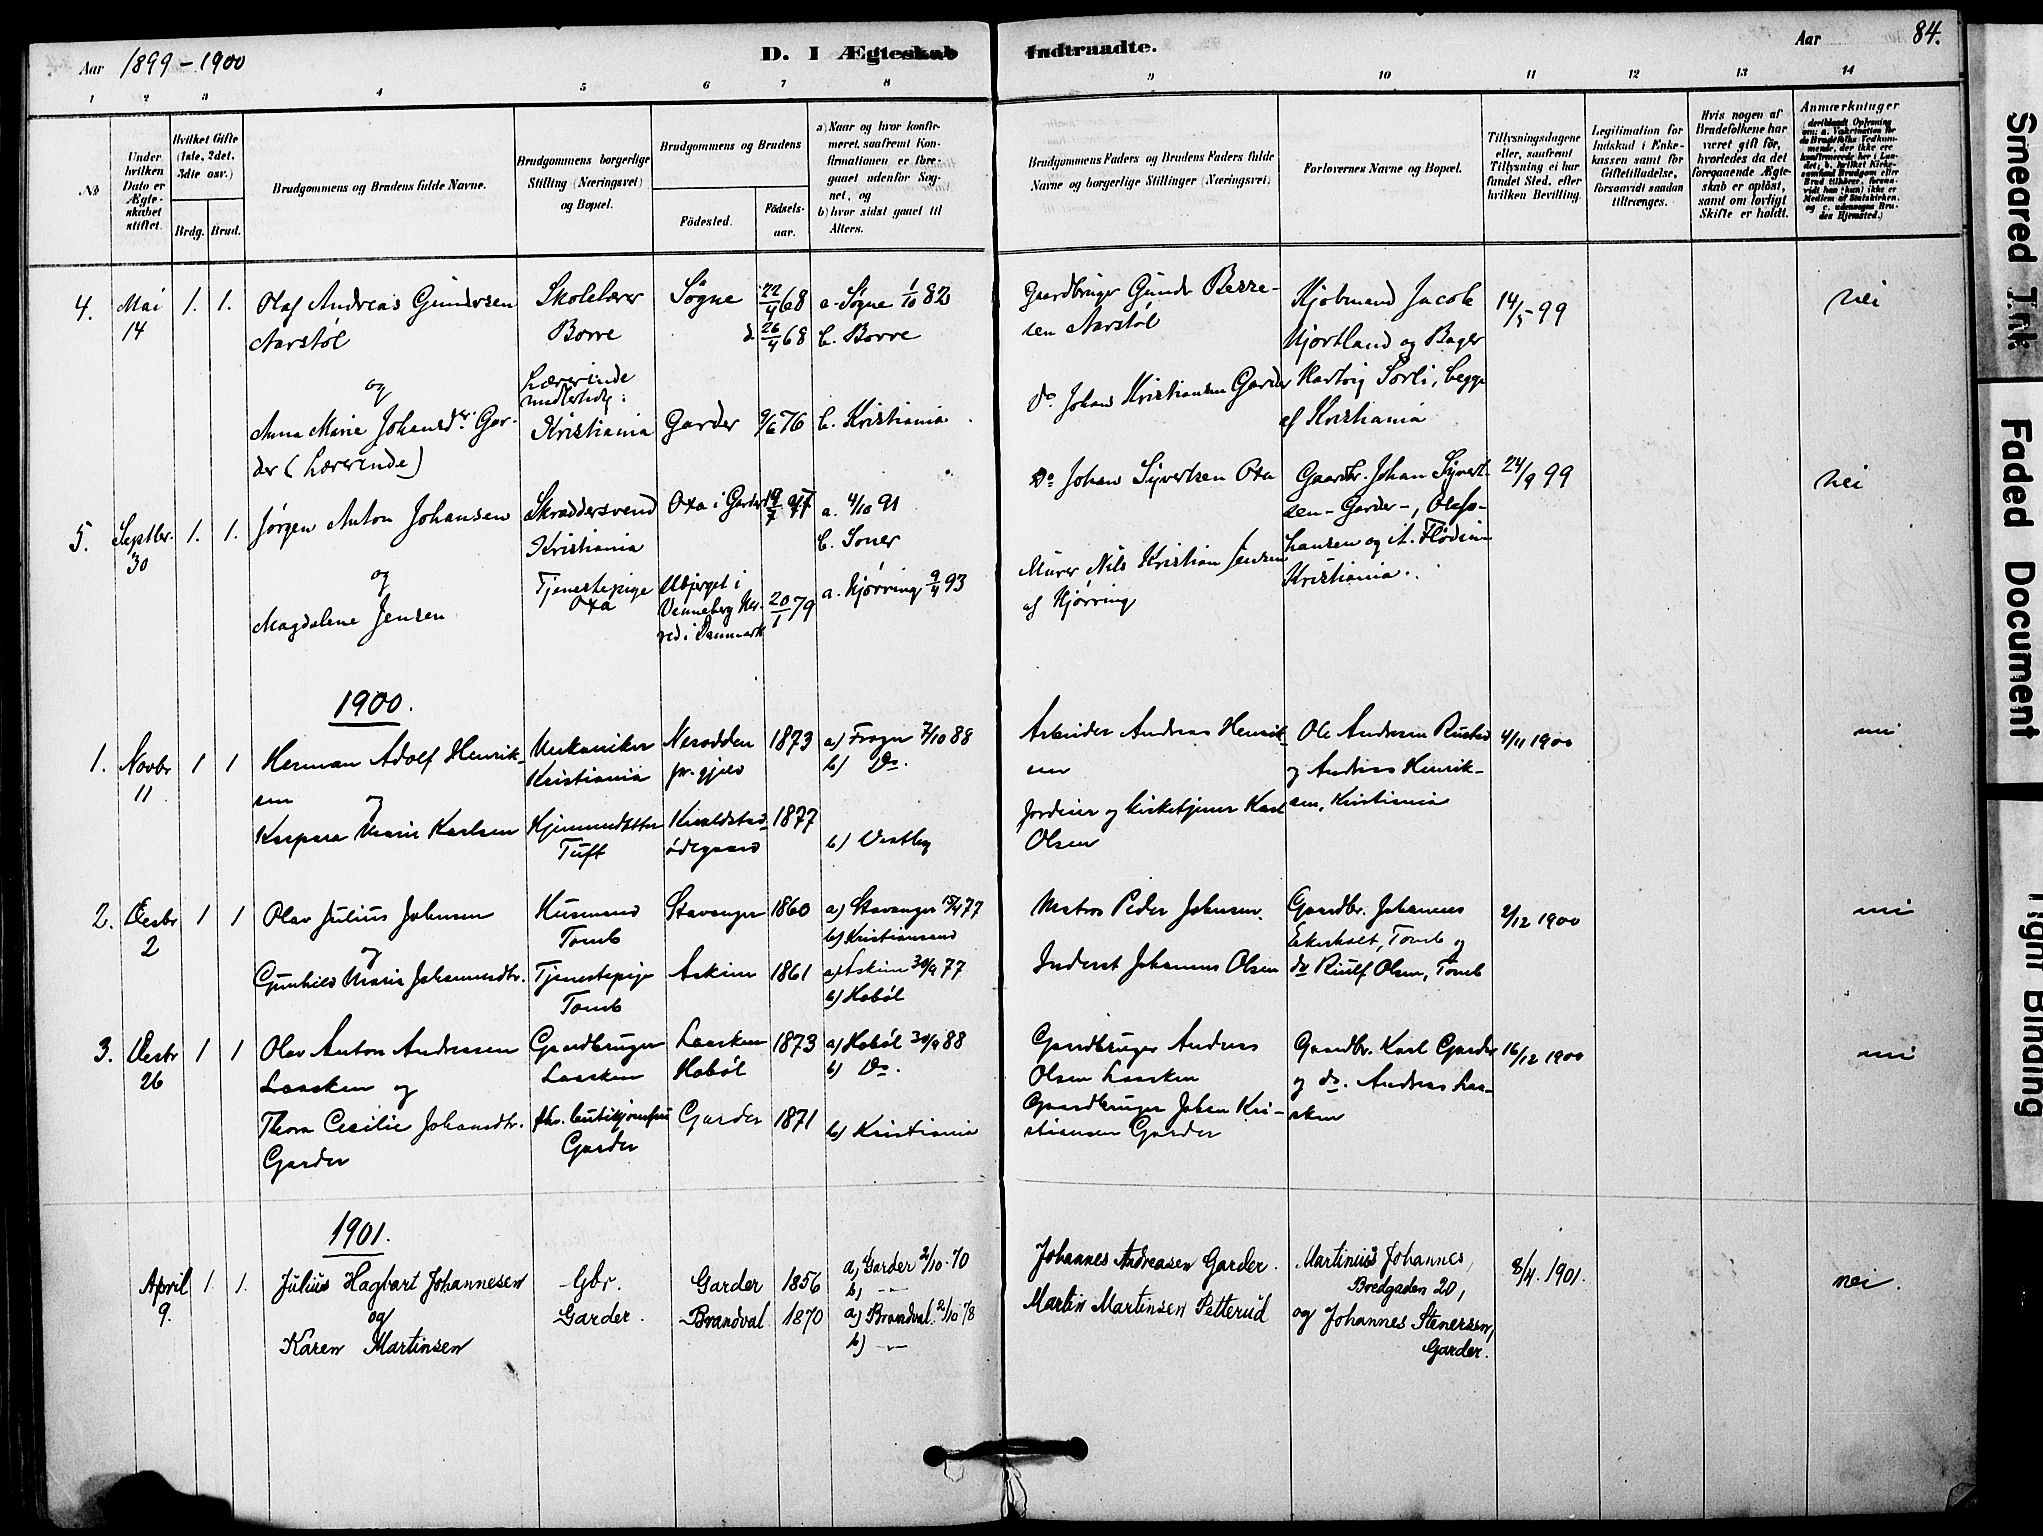 Aar 1899-1900
D. I Ægteskab Indtraadte.
Aar 84.
1 2 3 4 5 6 7 8 9 10 11 12 13 14
No
Under hvilken Dato er Ægteskabet stiftet.
Hvilket Gifte (1ste, 2det, 3die osv.)
Brdg. Brud.
Brudgommens og Brudens fulde Navne.
Brudgommens borgerlige Stilling (Næringsvei) og Bopæl.
Brudgommens og Brudens
Fødested.
Fødselsaar.
a) Naar og hvor konfirmeret, saafremt Konfirmationen er foregaaet udenfor Sognet, og
b) hvor sidst gaaet til Alters.
Brudgommens Faders og Brudens Faders fulde Navne og borgerlige Stillinger (Næringsvei)
Forlovernes Navne og Bopæl.
Tillysningsdagene eller, saafremt Tillysning ei har fundet Sted, efter hvilken Bevilling.
Legitimation for Indskud i Enkekassen samt for Giftetilladelse, forsaavidt saadan tiltrænges.
Hvis nogen af Brudefolkene har været gift før, hvorledes da det foregaaende Ægteskab er opløst, samt om lovligt Skifte er holdt.
Anmærkninger
4. Mai 14 1. 1.
Olaf Andreas Gundersen
Aarstøl
og
Anna Marie Johansdr. Gar-
der (Lærerinde)
Skolelærer
Borre
Lærerinde
midlertidig i
Kristiania
Søgne 22/4 68
d. 26/4 68
Garder 9/6 76
a. Søgne 1/10 82
b. Borre
b. Kristiania
Gaardbruger Gunder Berre-
sen Aarstøl
Do Johans Kristiansen Garder
Kjøbmand Jacob
Hjortland og Bager
Hartvig Sørli, begge
af Kristiania
14/5 99
nei
5. Septbr. 30 1. 1.
Jørgen Anton Johansen
og
Magdalene Jensen
Skræddersvend
Kristiania
Tjenestepige
Oxa
Oxa i Garder
Ubjerget i
Venneberg Her-
red i Danmark
20/1 79
a. 4/10 91
b. Soner
a. Hjørring 9/4 93
Do Johan Syvertsen Oxa
Murer Nils Kristian Jensen
af Hjørring
Gaardbr. Johan Syvert-
sen - Garder -,
hansen og A. Flød i
Kristiania.
24/9 99
nei
1900.
1. Novbr 11 1 1
Herman Adolf Henrik-
sen og
Kaspara Marie Karlsen
Mekaniker
Kristiania
Hjemmedatter
Tuft
Nesodden
pr.gjeld
Kvaldstad-
ødegaard
1873
1877
a) Frogn 7/10 88
b) Do.
b) Vestby
Arbeider Andreas Henrik-
sen
Jordeier og Kirketjener Karl
Olsen
Ole Andersen Rustad
og Andreas Henrik-
sen, Kristiania
4/11 1900
nei
2. Desbr 2 1 1
Olav Julius Johnsen
og
Gunhild Marie Johannesdtr.
Husmand
Tomb
Tjenestepige
Tomb
Stavanger 1860
Askim 1861
a) Stavanger 15/4 77
b) Kristiansand
a) Askim 30/9 77
b) Hobøl
Matros Peder Johnsen.
Inderst Johannes Olsen
Gaardbr. Johannes
Ekeholt, Tomb og
do Riulf Olsen, Tomb
2/12 1900
nei
3. Desbr 26 1 1
Olav Anton Andreassen
Laasken og
Thora Cecilie Johansdtr.
Garder
Gaardbruger
Laasken
fhv. butikjomfru
Garder
Laasken
Hobøl
Garder
1873
1871
a) Hobøl 30/9 88
b) Do.
b) Kristiania
Gaardbruger Andreas
Olsen Laasken
Gaardbruger Johan Kri-
stiansen Garder
Gaardbr. Karl Garder
og do. Andreas Laa-
sken
16/12 1900
nei
1901.
April 9. 1. 1.
Julius Hagbart Johannesen
og
Karen Martinsen
Gbr.
Garder.
Garder 1856
Brandval 1870
a) Garder 2/10 70
b) -"-
a) Brandval. 2/10 78
b) -"-
Johannes Andreasen Garder.
Martin Martinsen Petterud
Martinius Johannes,
Bredgaden 20,
og Johannes Stenersen,
Garder.
8/4. 1901.
nei.
Smeared Ink
Faded Document
Tight Binding